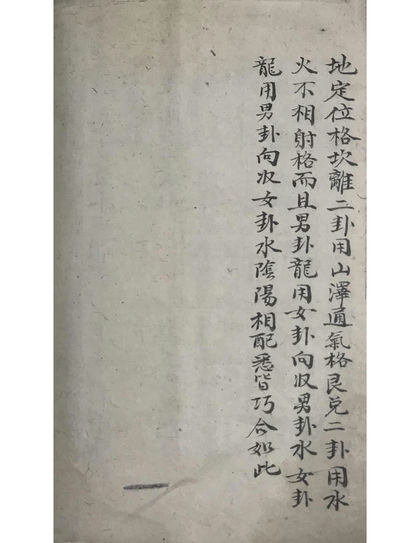 地定位格坎離二卦用山澤通氣格艮兌二卦用水
火不相射格而且男卦龍用女卦向收男卦水女卦
龍用男卦向收女卦水陰陽相配悉皆巧合如此